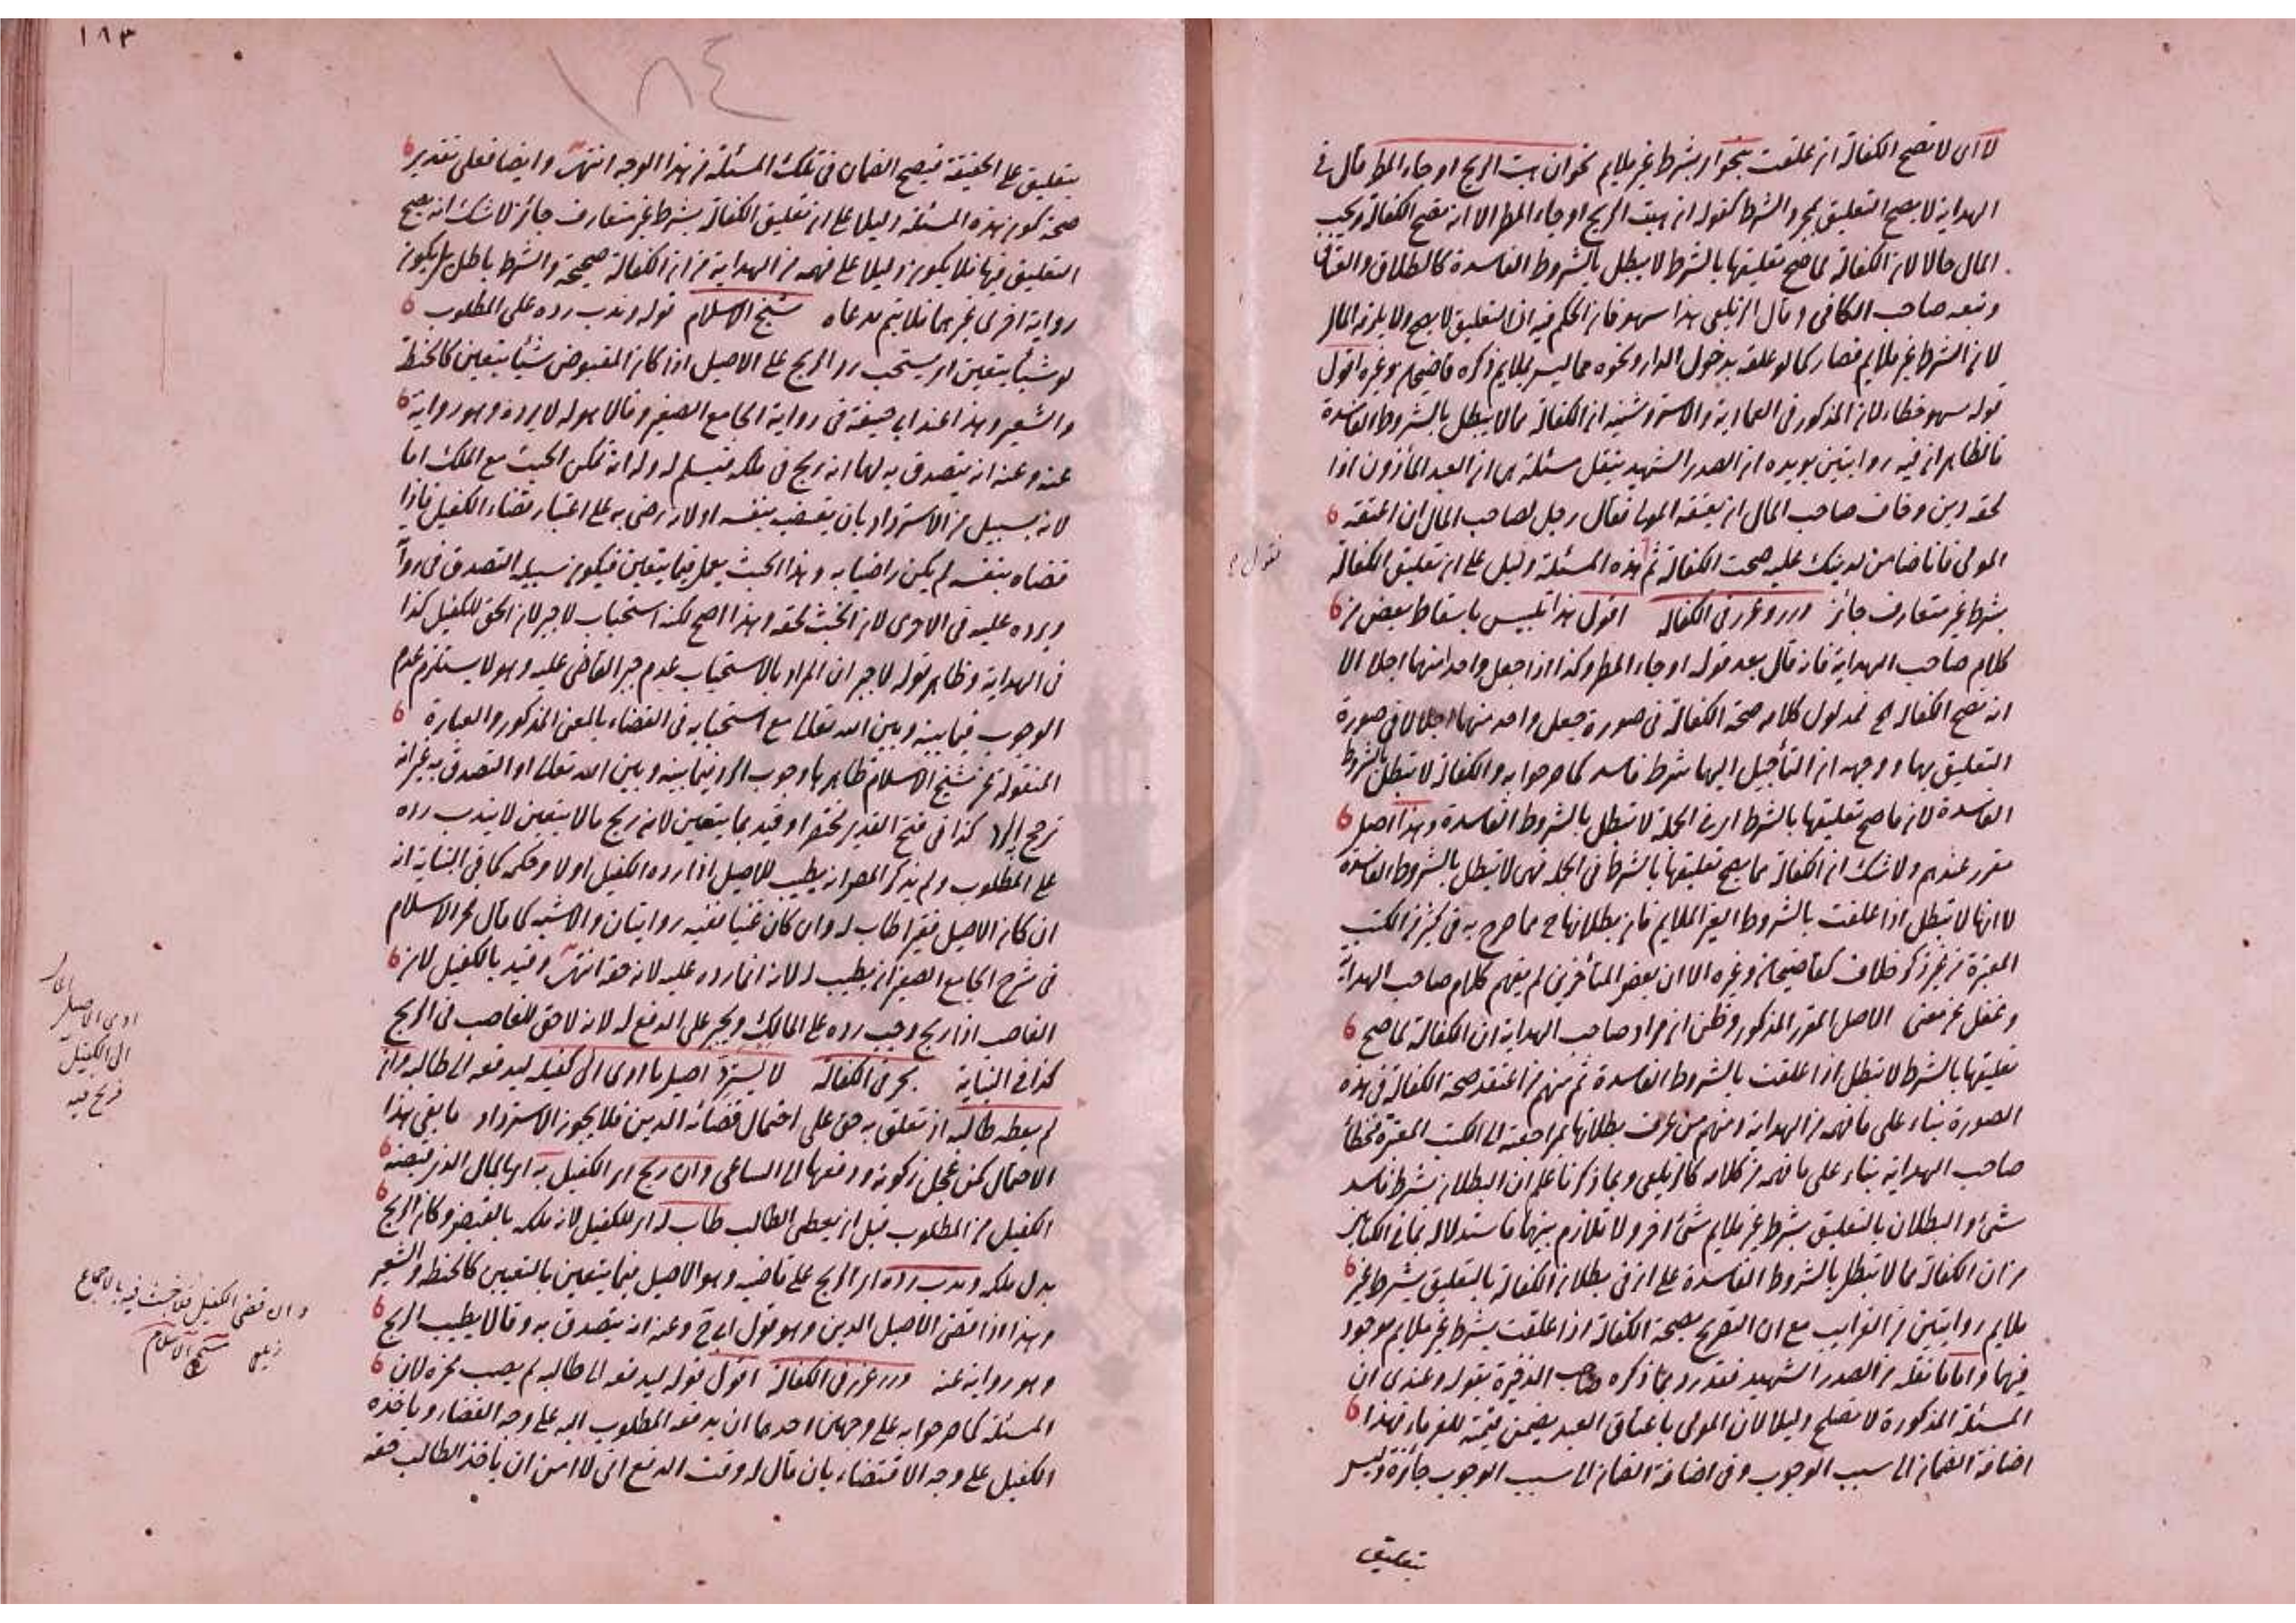 لا اى لا تصح الكفالة ان علقت بنحو اى بشرط غير ملايم نحو ان هبت الريح او جاء المطر قال فى
الهداية لا يصح التعليق بمجرد الشرط كقوله ان هبت الريح او جاء المطر الا انه تصح الكفالة ويجب
المال حالا لان الكفالة لما صح تعليقها بالشرط لا يبطل بالشروط الفاسدة كالطلاق والعتاق
وتبعه صاحب الكافى وقال الزيلعى هذا سهو فان الحكم فيه ان التعليق لا يصح ولا يلزمه المال
لان الشرط غير ملايم فصار كما لو علقه بدخول الدار ونحوه مما ليس بملايم ذكره قاضيخان وغيره اقول
قوله سهو خطاء لان المذكور فى العمادية والاستروشنيه ان الكفالة مما لا يبطل بالشروط الفاسدة
فالظاهر ان فيه روايتين يويده ان الصدر الشهيد ينقل مسئلة هى ان العبد المأذون اذا
لحقه دين وخاف صاحب المال ان يعتقه المولى فقال رجل لصاحب المال ان اعتقه
المولى فانا ضامن لدينك عليه صحت الكفالة ثم هذه المسئلة دليل على ان تعليق الكفالة
بشرط غير متعارف جائز درر وغرر فى الكفالة اقول هذا تلبيس باسقاط بعض من
كلام صاحب الهداية فانه قال بعد قوله او جاء المطر وكذا اذا جعل واحدا منهما اجلا الا
انه تصح الكفالة الخ فمدلول كلامه صحة الكفالة فى صورة جعل واحد منهما اجلا لا فى صورة
التعليق بهما ووجهه ان التأجيل اليهما شرط فاسد كما صرحوا به والكفالة لا تبطل بالشروط
الفاسدة لان ما صح تعليقها بالشرط اى فى الجملة لا تبطل بالشروط الفاسدة وهذا اصل
مقرر عندهم ولا شك ان الكفالة مما يصح تعليقها بالشرط فى الجملة فهى لا تبطل بالشروط الفاسدة
لا انها لا تبطل اذا علقت بالشروط الغير الملايم فان بطلانها ح مما صرح به فى كثير من الكتب
المعتبرة من غير ذكر خلاف كقاضيخان وغيره الا ان بعض المتأخرين لم يفهم كلام صاحب الهداية
وغفل عن معنى الاصل المقرر المذكور وظن ان مراد صاحب الهداية ان الكفالة لما صح
تعليقها بالشرط لا تبطل اذا علقت بالشروط الفاسدة ثم منهم من اعتقد صحة الكفالة فى هذه
الصورة بناء على ما فهمه من الهداية ومنهم من عرف بطلانها بمراجعته الى الكتب المعتبرة فخطأ
صاحب الهداية بناء على ما فهمه من كلامه كالزيلعى وبما ذكرنا علم ان البطلان بشرط فاسد
شئ والبطلان بالتعليق بشرط غير ملايم شئ اخر ولا تلازم بينهما فاستدلاله بما فى الكتابين
من ان الكفالة مما لا تبطل بالشروط الفاسدة على ان فى بطلان الكفالة بالتعليق بشرط غير
ملايم روايتين من الغرايب مع ان التصريح بصحة الكفالة اذا علقت بشرط غير ملايم موجود
فيهما واما ما نقله من الصدر الشهيد فقد رد بما ذكره صاحب الذخيرة بقوله وعندى ان
المسئلة المذكورة لا تصلح دليلا لان المولى باعتاق العبد يضمن قيمته للغرماء فهذا
اضافة الضمان الى سبب الوجوب وفى اضافة الضمان الى سبب الوجوب جائزة وليس
بتعليق
نقول
١٨٣
١٨٤
بتعليق على الحقيقة فيصح الضمان فى تلك المسئلة من هذا الوجه انتهى وايضا فعلى تقدير
صحة كون هذه المسئلة دليلا على ان تعليق الكفالة بشرط غير متعارف جائز لا شك انه يصح
التعليق فيها فلا يكون دليلا على فهمه من الهداية من ان الكفالة صحيحة والشرط باطل بل يكون
رواية اخرى غيرهما فلا يتم مدعاه شيخ الاسلام قوله وندب رده على المطلوب
لو شيأ يتعين اى يستحب رد الربح على الاصيل اذا كان المقبوض شيأ يتعين كالحنطة
والشعير وهذا عند ابى حنيفة فى رواية الجامع الصغير وقالا هو له لا يرده وهو رواية
عنه وعنه انه يتصدق به لهما انه ربح فى ملكه فيسلم له وله انه تمكن الخبث مع الملك اما
لانه بسبيل من الاسترداد بان يقضيه بنفسه او لانه رضى به على اعتبار قضاء الكفيل فاذا
قضاه بنفسه لم يكن راضيا به وهذا الخبث يعمل فيما يتعين فيكون سبيله التصدق فى رواية
ويرده عليه فى الاخرى لان الخبث لحقه وهذا اصح لكنه استحباب لا جبر لان الحق للكفيل كذا
فى الهداية وظاهر قوله لا جبر ان المراد بالاستحباب عدم جبر القاضى عليه وهو لا يستلزم عدم
الوجوب فيما بينه وبين الله تعالى مع استحبابه فى القضاء بالمعنى المذكور والعبارة
المنقولة عن شيخ الاسلام ظاهرها وجوب الرد فيما بينه وبين الله تعالى او التصدق به غير انه
ترجح الرد كذا فى فتح القدير مختصرا وقيد بما يتعين لانه ربح ما لا يتعين لا يندب رده
على المطلوب ولم يذكر المصر انه يطيب للاصيل اذا رده الكفيل او لا وحكمه كما فى البناية انه
ان كان الاصيل فقيرا طاب له وان كان غنيا ففيه روايتان والاشبه كما قال فخر الاسلام
فى شرح الجامع الصغير ان يطيب له لانه انما رده عليه لانه حقه انتهى وقيد بالكفيل لان
الغاصب اذا ربح وجب رده على المالك ويجبر على الدفع له لانه لا حق للغاصب فى الربح
كذا فى البناية بحر فى الكفالة لا يسترد اصيل ما ادى الى كفيله ليدفعه الى طالبه وان
لم يعطه طالبه اذ تعلق به حق على احتمال قضائه الدين فلا يجوز الاسترداد ما بقى هذا
الاحتمال كمن عجل زكوته ودفعها الى الساعى وان ربح اى الكفيل به اى بالمال الذى قبضه
الكفيل من المطلوب قبل ان يعطى الطالب طاب له اى للكفيل لانه ملكه بالقبض وكان الربح
بدل ملكه وندب رده اى الربح على قاضيه وهو الاصيل فيما يتعين بالتعيين كالحنطة والشعير
وهذا اذا قضى الاصيل الدين وهو قول ابى ح وعنه انه يتصدق به وقالا يطيب الربح
وهو رواية عنه درر غرر فى الكفالة اقول قوله ليدفعه الى طالبه لم يصب محزه لان
المسئلة كما صرحوا به على وجهين احدهما ان يدفعه المطلوب اليه على وجه القضاء وياخذه
الكفيل على وجه الاقتضاء بان قال له وقت الدفع انى لا امن ان ياخذ الطالب حقه
ادى الاصيل المال
الى الكفيل
فربح فيه
وان قضى الكفيل فلا خبث فيه بالاجماع
زيلعى شيخ الاسلام